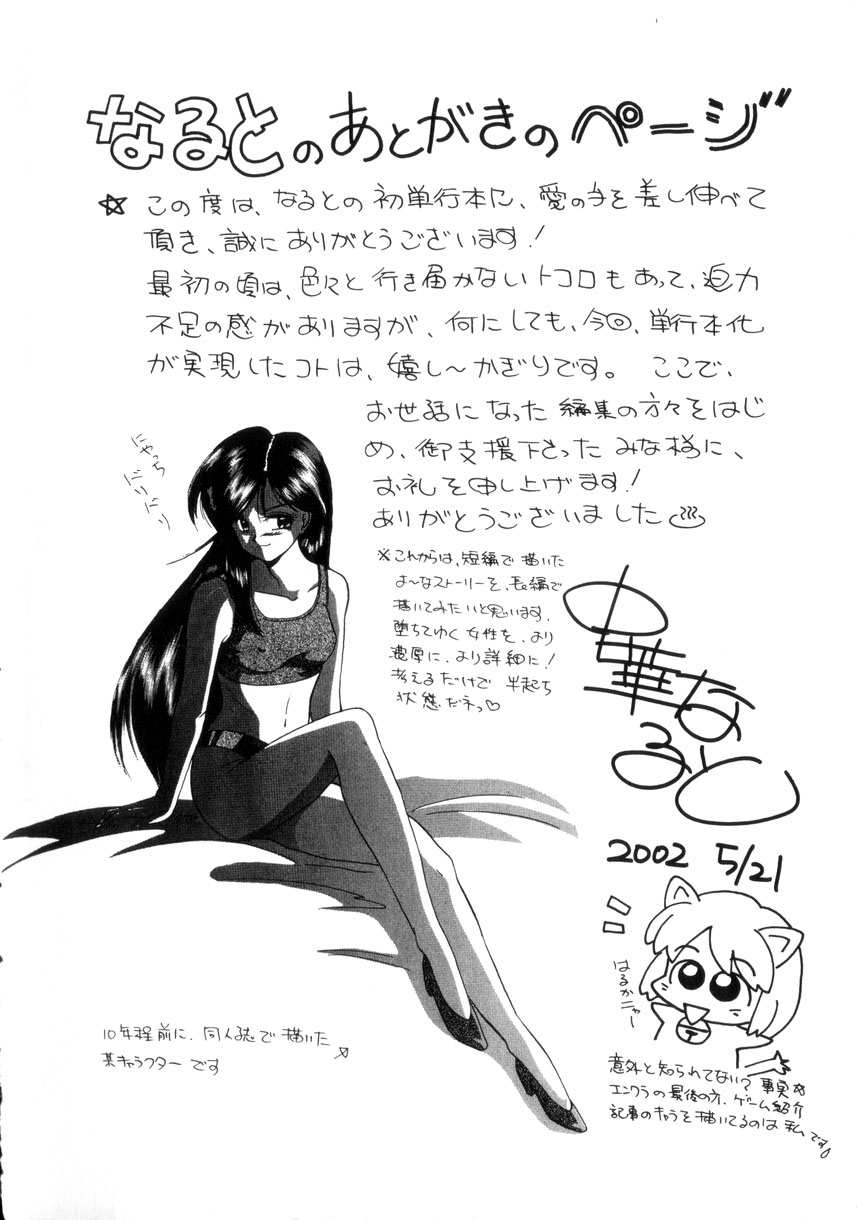 なるとのあとがきのページ
☆ この度は、なるとの初単行本に、愛の手を差し伸べて
頂き、誠にありがとうございます!
最初の頃は、色々と行き届かないトコロもあって、迫力
不足の感がありますが、何にしても、今回、単行本化
が実現したコトは、嬉し〜かぎりです。 ここで、
お世話になった編集の方々をはじ
め、御支援下さったみな様に、
お礼を申し上げます!
ありがとうございました
にゃっち
どりどり
※これからは、短編で描いた
よ〜なストーリーを、長編で
描いてみたいと思います.
堕ちてゆく女性を、より
濃厚に、より詳細に!
考えるだけで 半起ち
状態だネっ♡
中華なると
2002 5/21
はるかニャー
10年程前に、同人誌で描いた
某キャラクターです
意外と知られてない? 事実☆
エンクラの最後の方、ゲーム紹介
記事のキャラを描いてるのは私です♪